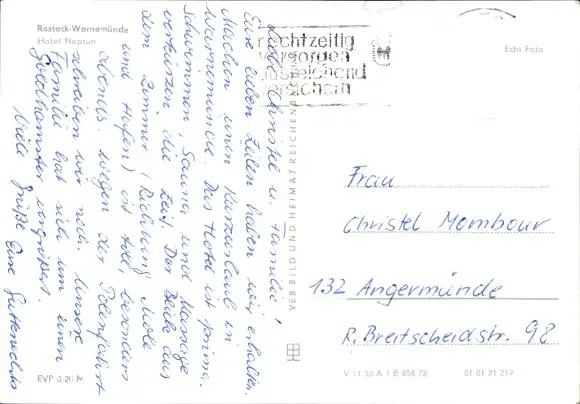 Rostock-Warnemünde
Hotel Neptun
Liebe Christel u. Familie!
Eure lieben Zeilen haben wir erhalten.
Machen einen Kurzurlaub in
Warnemünde. Das Hotel ist prima.
Schwimmen, Sauna und Massage
verkürzen die Zeit. Der Blick aus
dem Zimmer (Richtung Mole
und Hafen) ist toll, besonders
abends. Wegen der Polenfahrt
schreiben wir noch. Unsere
Familie hat sich um einen
Goldhamster vergrößert.
Viele Grüße Eure
EVP 0,20 M
rechtzeitig
vorsorgen
ausreichend
VEB BILD UND HEIMAT REICHENBACH
Echt Foto
Frau
Christel Mombour
132 Angermünde
R. Breitscheidstr. 98
V 11 50 A 1 B 958 72
01 01 31 219